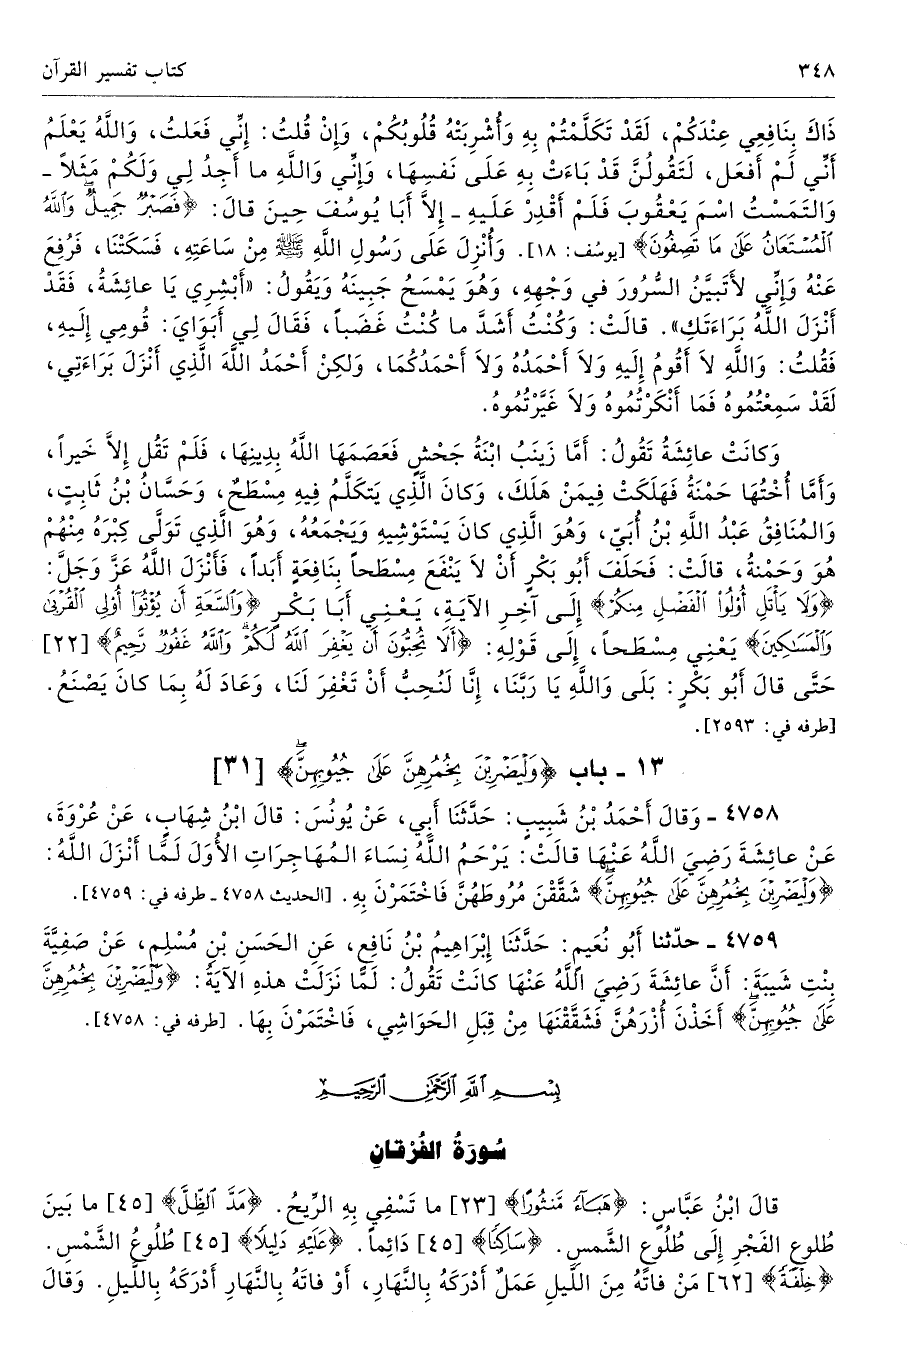 ٣٤٨ كتاب تفسير القرآن
ذَاكَ بِنَافِعِي عِنْدَكُمْ، لَقَدْ تَكَلَّمْتُمْ بِهِ وَأُشْرِبَتْهُ قُلُوبُكُمْ، وَإِنْ قُلتُ: إِنِّي فَعَلتُ، وَاللَّهُ يَعْلَمُ
أَنِّي لَمْ أَفعَل، لَتَقُولُنَّ قَدْ بَاءَتْ بِهِ عَلَى نَفسِهَا، وَإِنِّي وَاللَّهِ ما أَجِدُ لِي وَلَكُمْ مَثَلاً ـ
وَالتَمَسْتُ اسْمَ يَعْقُوبَ فَلَمْ أَقْدِرْ عَلَيهِ ـ إِلاَّ أَبَا يُوسُفَ حِينَ قالَ: ﴿فَصَبْرٌ جَمِيلٌ وَٱللَّهُ
ٱلْمُسْتَعَانُ عَلَىٰ مَا تَصِفُونَ﴾ [يوسُف: ١٨]. وَأُنْزِلَ عَلَى رَسُولِ اللَّهِ ﷺ مِنْ سَاعَتِهِ، فَسَكَتْنَا، فَرُفِعَ
عَنْهُ وَإِنِّي لأَتَبَيَّنُ السُّرُورَ في وَجْهِهِ، وَهُوَ يَمْسَحُ جَبِينَهُ وَيَقُولُ: «أَبْشِرِي يَا عائِشَةُ، فَقَدْ
أَنْزَلَ اللَّهُ بَرَاءَتَكِ». قالَتْ: وَكُنْتُ أَشَدَّ ما كُنْتُ غَضَباً، فَقَالَ لِي أَبَوَايَ: قُومِي إِلَيهِ،
فَقُلتُ: وَاللَّهِ لاَ أَقُومُ إِلَيهِ وَلاَ أَحْمَدُهُ وَلاَ أَحْمَدُكُمَا، وَلكِنْ أَحْمَدُ اللَّهَ الَّذِي أَنْزَلَ بَرَاءَتِي،
لَقَدْ سَمِعْتُمُوهُ فَمَا أَنْكَرْتُمُوهُ وَلاَ غَيَّرْتُمُوهُ.
وَكانَتْ عائِشَةُ تَقُولُ: أَمَّا زَينَبُ ابْنَةُ جَحْشٍ فَعَصَمَهَا اللَّهُ بِدِينِهَا، فَلَمْ تَقُل إِلاَّ خَيراً،
وَأَمَّا أُخْتُهَا حَمْنَةُ فَهَلَكَتْ فِيمَنْ هَلَكَ، وَكانَ الَّذِي يَتَكَلَّمُ فِيهِ مِسْطَحٌ، وَحَسَّانُ بْنُ ثَابِتٍ،
وَالمُنَافِقُ عَبْدُ اللَّهِ بْنُ أُبَيٍّ، وَهُوَ الَّذِي كانَ يَسْتَوْشِيهِ وَيَجْمَعُهُ، وَهُوَ الَّذِي تَوَلَّى كِبْرَهُ مِنْهُمْ
هُوَ وَحَمْنَةُ، قالَتْ: فَحَلَفَ أَبُو بَكْرٍ أَنْ لاَ يَنْفَعَ مِسْطَحاً بِنَافِعَةٍ أَبَداً، فَأَنْزَلَ اللَّهُ عَزَّ وَجَلَّ:
﴿وَلَا يَأْتَلِ أُوْلُوا۟ ٱلْفَضْلِ مِنكُمْ﴾ إِلَى آخِرِ الآيَةِ، يَعْنِي أَبَا بَكْرٍ ﴿وَٱلسَّعَةِ أَن يُؤْتُوٓا۟ أُوْلِى ٱلْقُرْبَىٰ
وَٱلْمَسَٰكِينَ﴾ يَعْنِي مِسْطَحاً، إِلَى قَوْلِهِ: ﴿أَلَا تُحِبُّونَ أَن يَغْفِرَ ٱللَّهُ لَكُمْ وَٱللَّهُ غَفُورٌ رَّحِيمٌ﴾ [٢٢]
حَتَّى قالَ أَبُو بَكْرٍ: بَلَى وَاللَّهِ يَا رَبَّنَا، إِنَّا لَنُحِبُّ أَنْ تَغْفِرَ لَنَا، وَعَادَ لَهُ بِمَا كانَ يَصْنَعُ.
[طرفه في: ٢٥٩٣].
١٣ ـ باب ﴿وَلْيَضْرِبْنَ بِخُمُرِهِنَّ عَلَىٰ جُيُوبِهِنَّ﴾ [٣١]
٤٧٥٨ ـ وَقالَ أَحْمَدُ بْنُ شَبِيبٍ: حَدَّثَنَا أَبِي، عَنْ يُونُسَ: قالَ ابْنُ شِهَابٍ، عَنْ عُرْوَةَ،
عَنْ عائِشَةَ رَضِيَ اللَّهُ عَنْهَا قالَتْ: يَرْحَمُ اللَّهُ نِسَاءَ المُهَاجِرَاتِ الأُوَلَ لَمَّا أَنْزَلَ اللَّهُ:
﴿وَلْيَضْرِبْنَ بِخُمُرِهِنَّ عَلَىٰ جُيُوبِهِنَّ﴾ شَقَّقْنَ مُرُوطَهُنَّ فَاخْتَمَرْنَ بِهِ. [الحديث ٤٧٥٨ ـ طرفه في: ٤٧٥٩].
٤٧٥٩ ـ حدّثنا أَبُو نُعَيمٍ: حَدَّثَنَا إِبْرَاهِيمُ بْنُ نَافِعٍ، عَنِ الحَسَنِ بْنِ مُسْلِمٍ، عَنْ صَفِيَّةَ
بِنْتِ شَيبَةَ: أَنَّ عائِشَةَ رَضِيَ اللَّهُ عَنْهَا كانَتْ تَقُولُ: لَمَّا نَزَلَتْ هذهِ الآيَةُ: ﴿وَلْيَضْرِبْنَ بِخُمُرِهِنَّ
عَلَىٰ جُيُوبِهِنَّ﴾ أَخَذْنَ أُزْرَهُنَّ فَشَقَّقْنَهَا مِنْ قِبَلِ الحَوَاشِي، فَاخْتَمَرْنَ بِهَا. [طرفه في: ٤٧٥٨].
بِسْمِ ٱللَّهِ ٱلرَّحْمَٰنِ ٱلرَّحِيمِ
سُورَةُ الفُرْقانِ
قالَ ابْنُ عَبَّاسٍ: ﴿هَبَآءً مَّنثُورًا﴾ [٢٣] ما تَسْفِي بِهِ الرِّيحُ. ﴿مَدَّ ٱلظِّلَّ﴾ [٤٥] ما بَينَ
طُلوعِ الفَجْرِ إِلَى طُلُوعِ الشَّمسِ. ﴿سَاكِنًا﴾ [٤٥] دَائِماً. ﴿عَلَيْهِ دَلِيلًا﴾ [٤٥] طُلُوعُ الشَّمْسِ.
﴿خِلْفَةً﴾ [٦٢] مَنْ فاتَهُ مِنَ اللَّيلِ عَمَلٌ أَدْرَكَهُ بِالنَّهَارِ، أَوْ فاتَهُ بِالنَّهَارِ أَدْرَكَهُ بِاللَّيلِ. وَقالَ